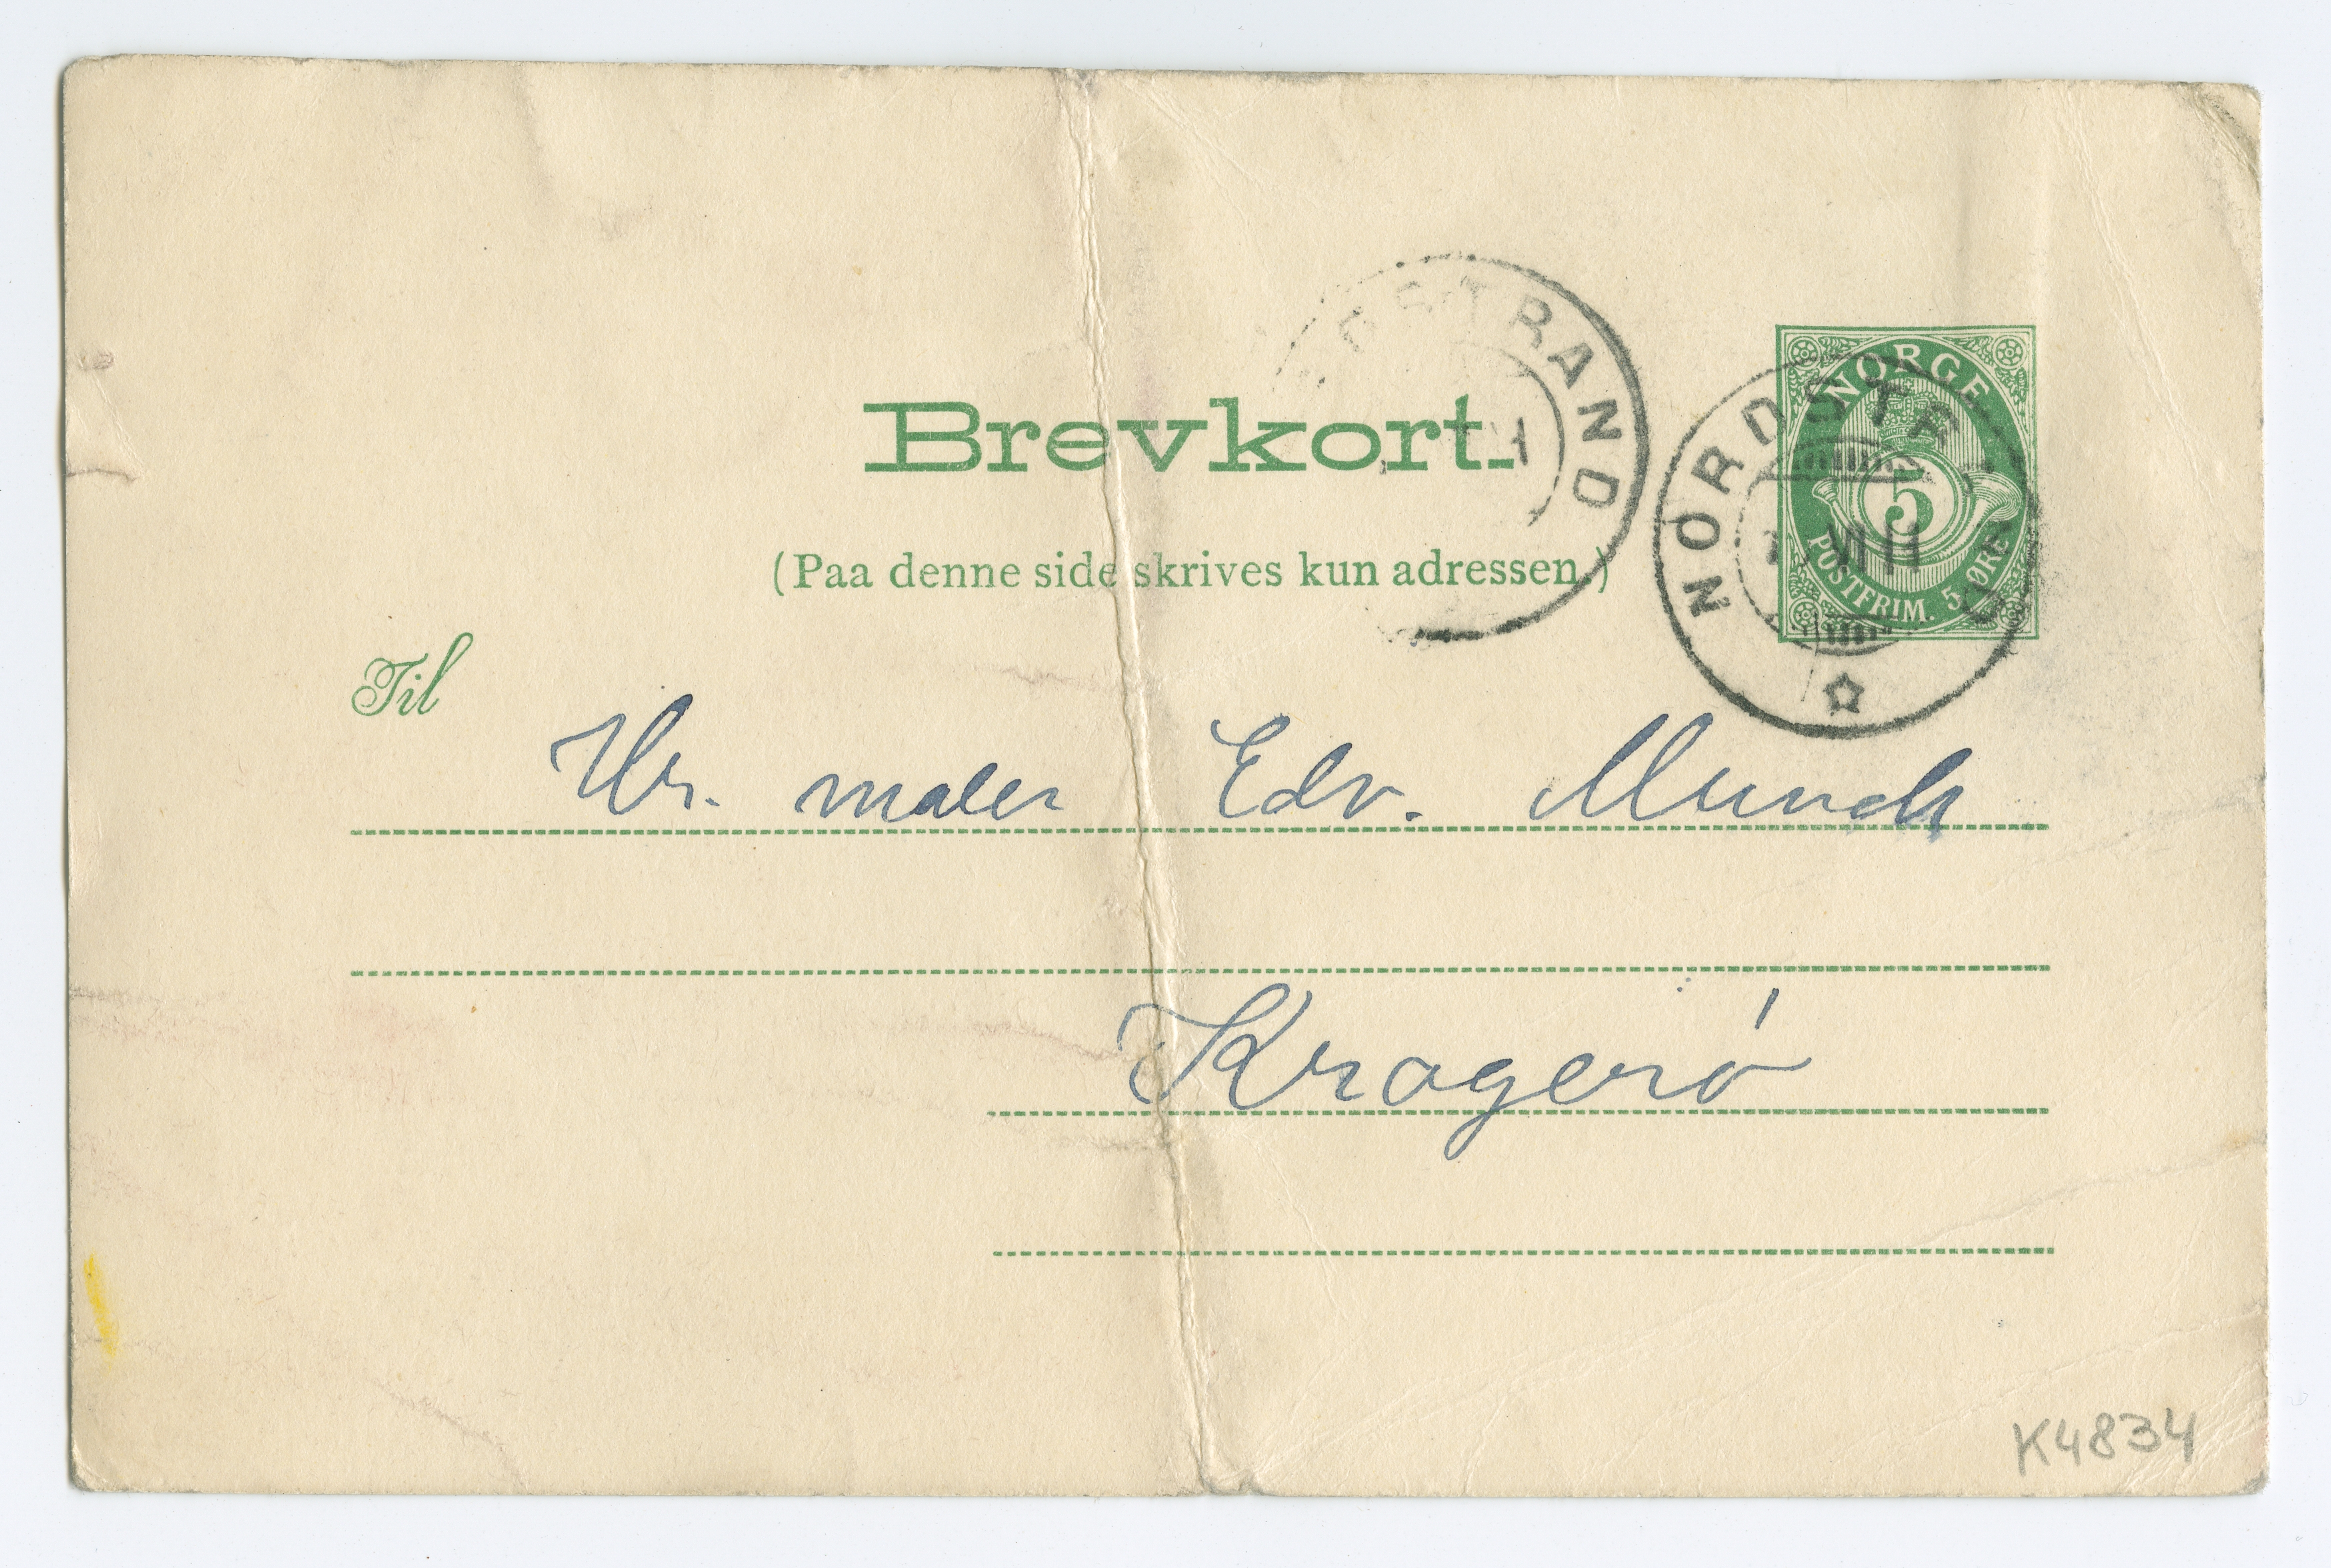 Brevkort.
(Paa denne side skrives kun adressen.)
NORGE
5
POSTFRIM. 5 ØRE
NORDSTRAND
VII 11
RDSTRAND
Til
Hr. maler Edv. Munch
Kragerö
K4834